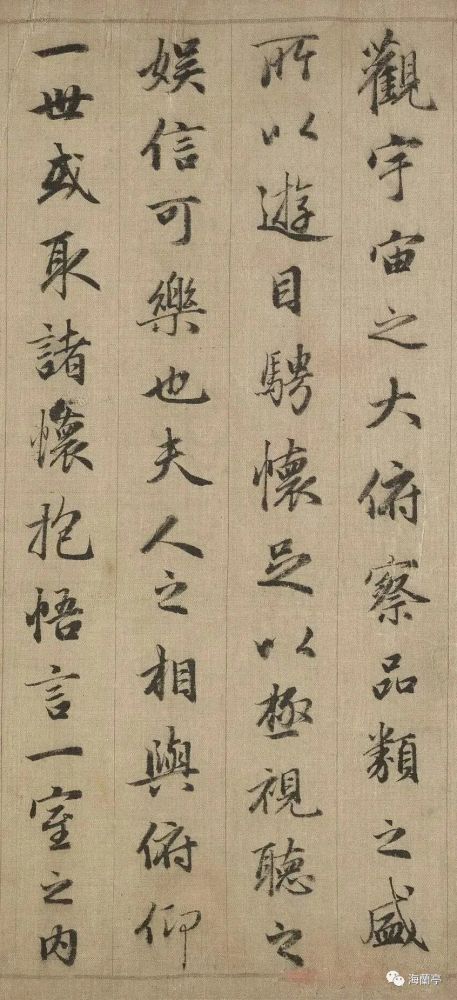 觀宇宙之大俯察品類之盛
所以遊目騁懷足以極視聽之
娛信可樂也夫人之相與俯仰
一世或取諸懷抱悟言一室之内
海蘭亭